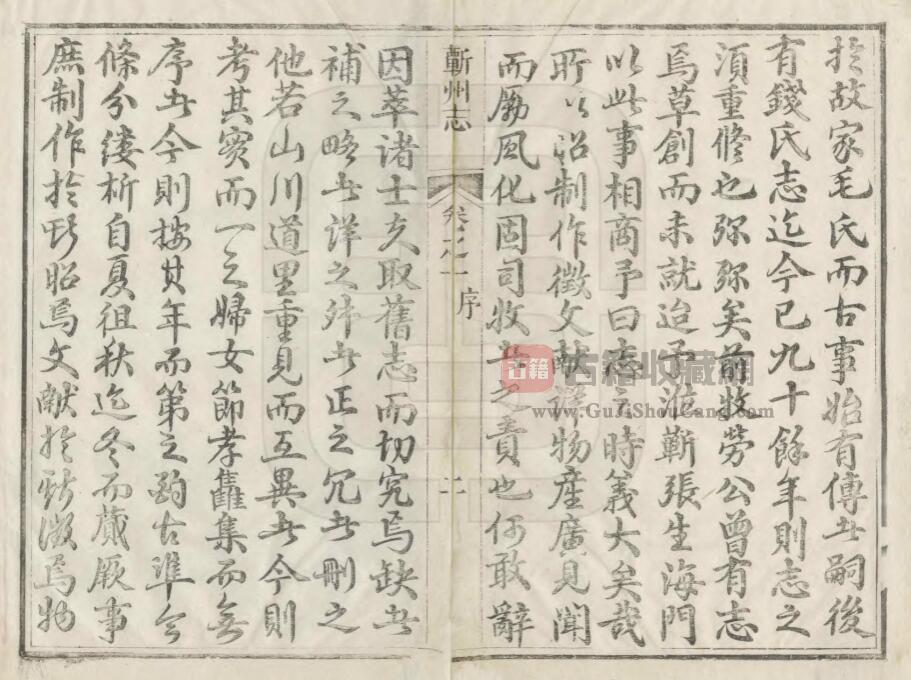 於故家毛氏而古事始有傳者嗣後
有錢氏志迄今已九十餘年則志之
須重修也弥弥矣前牧勞公曾有志
焉草創而未就迨予涖蘄張生海門
以此事相商予曰志之時義大矣哉
所以昭制作徵文献譁物産廣見聞
而勵風化固司牧者之責也何敢辭
蘄州志
卷之一 序
二
因萃诸士夫取舊志而切究焉缺者
補之略者详之舛者正之冗者刪之
他若山川道里重見而互異者今則
考其實而一之婦女節孝雜集而無
序者今則按其年而第之酌古準今
條分缕析自夏徂秋迄冬而蕆厥事
庶制作於斯昭焉文献於斯徵焉物
古籍
古籍收藏网
www.GuJiShouCang.com